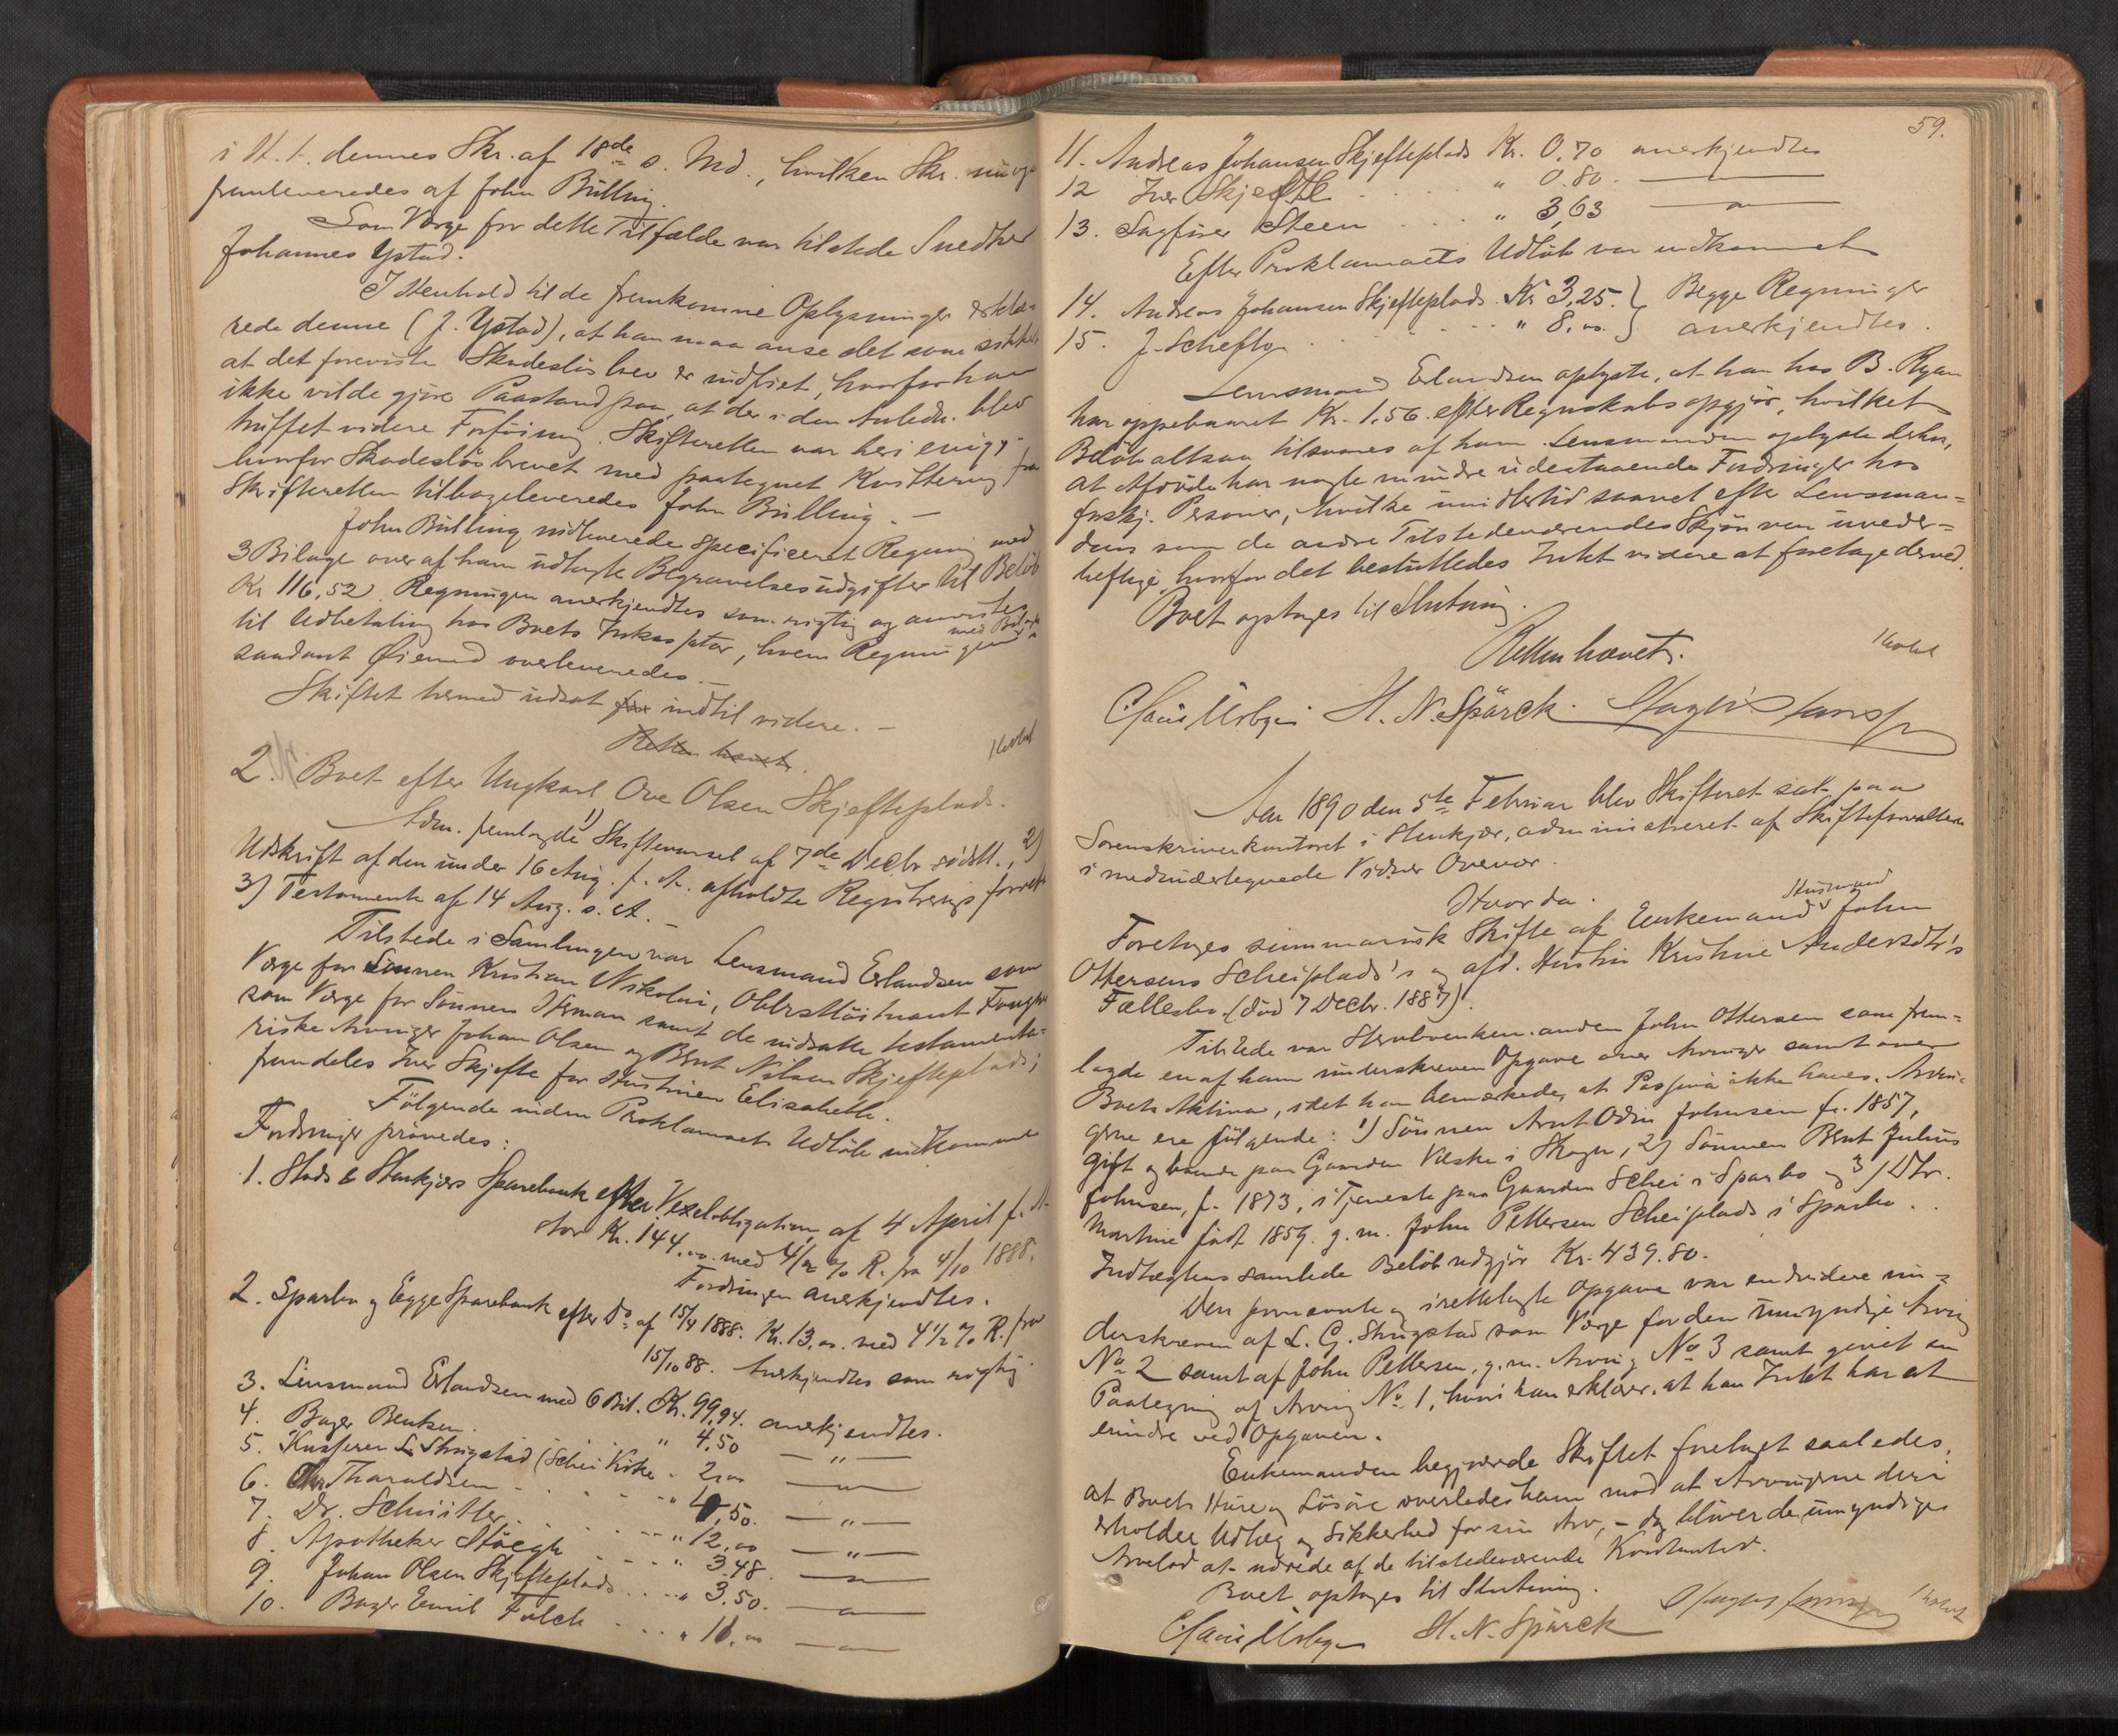 i H. t. dennes Skr. af 18de s. Md., hvilken Skr.
fremleveredes af John Bülling.
Som Værge for dette Tilfælde var tilstede Snedker
Johannes Ystad.
I Henhold til de fremkomne Oplysninger erklæ-
rede denne (J. Ystad), at han maa anse det som sikkert
at det foreviste Skadesløsbrev er indfriet, hvorfor han
ikke vilde gjøre Paastand paa, at der i den Anledn. blev
truffet videre Forføining. Skifteretten var heri enig,
hvorfor Skadesløsbrevet med paategnet Kvittering fra
Skifteretten tilbageleveredes John Bülling. —
John Bülling indleverede specificeret Regning med
3 Bilage over af ham udlagte Begravelsesudgifter til Beløb
Kr 116,52. Regningen anerkjendtes som rigtig og anvistes
til Udbetaling hos Boets Inkassator, hvem Regningen med Bilage
saadant Øiemed overleveredes. —
Skiftet hermed udsat for indtil videre. —
Retten hævet.
2. Boet efter Ungkarl Ove Olsen Skjefteplads.
Adm. fremlagde 1) Skiftevarsel af 7de Decbr sidstl., 2)
Udskrift af den under 16 Aug. f. A. afholdte Registreringsforret
3) Testamente af 14 Aug. s. A. —
Tilstede i Samlingen var Lensmand Erlandsen som
Værge for Sønnen Kristian Nikolai, Oberstløitnant
som Værge for Sønnen Herman samt de indsatte testamenta-
riske Arvinger Johan Olsen og Bernt Nilsen Skjefteplads;
fremdeles Iver Skjefte for Hustruen Elisabeth.
Følgende inden Proklamaets Udløb indkomne
Fordringer prøvedes:
1. Stods & Stenkjærs Sparebank efter Vexelobligation af 4 April f. A.
stor Kr. 144.00 med 4½ % R. fra 4/10 1888.
Fordringen anerkjendtes.
2. Sparbu og Egge Sparebank efter Do af 15/4 1888. Kr. 13.00. med 4½ % R. fra
15/10 88. Anerkjendtes som rigtig.
3. Lensmand Erlandsen med 6 Bil. Kr. 99,94. anerkjendtes.
4. Bager Bentsen. " 4,50 — " —
5. Kasserer L. Strugstad (Schei Kirke - 2,00 — " —
6. Chr. Tharaldsen - . . . - " ,50. — " —
7. Dr. Schnitler . . . . - - " 12,00 — " —
8. Apotheker Støegh . - - - " 3.48. — " —
9. Johan Olsen Skjefteplads . . . . " 3.50. — " —
10. Bager Emil Falck . . . . " 11.00 — " —
59.
11. Andreas Johansen Skjefteplads Kr. 0,70 anerkjendtes
12 Iver Skjefte . . . " 0.80. — " —
13. Sagfører Steen . . . " 3,63 — " —
Efter Proklamaets Udløb var indkommet
14. Andreas Johansen Skjefteplads. Kr 3,25. } Begge Regninger
15. J. Schefte . . . . . " 8,00. } anerkjendtes.
Lensmand Erlandsen oplyste, at han hos B. Ryan
har oppebaaret Kr. 1,56. efter Regnskabsopgjør, hvilket
Beløb altsaa tilsvares af ham. Lensmanden oplyste derhos,
at Afdøde har nogle mindre udestaaende Fordringer hos
forskj. Personer, hvilke imidlertid saavel efter Lensman-
dens som de andre Tilstedeværendes Skjøn var uveder-
heftige, hvorfor det besluttedes Intet videre at foretage derved.
Boet optages til Slutning.
Retten hævet.
H. N. Spärck.
Aar 1890 den 5te Februar blev Skifteret sat paa
Sorenskriverkontoret i Stenkjær, administreret af Skifteforvalteren
i medundertegnede Vidners Overvær.
Hvor da.
Foretoges summarisk Skifte af Enkemand Husmand John
Ottersens Scheiplads's og afd. Hustru Kristine Andersdtr's
Fællesbo. (død 7 Decbr. 1887).
Tilstede var Stervboenkemanden John Ottersen som frem-
lagde en af ham underskreven Opgave over Arvinger samt over
Boets Aktiva, idet han bemærkede, at Passiva ikke haves. Arvin-
gerne ere følgende: 1) Sønnen Arnt Odin Johnsen f. 1857,
gift og boende paa Gaarden Velske i Skogn, 2) Sønnen Bernt Julius
Johnsen, f. 1873, i Tjeneste paa Gaarden Schei i Sparbu og 3) Dtr.
Martine født 1859. g. m. John Pettersen Scheiplads i Sparbu. .
Indtægtens samlede Beløb udgjør Kr. 439.80.
Den fornævnte og irettelagte Opgave var endvidere un-
derskreven af L. G. Strugstad som Værge for den umyndige Arving
No 2 samt af John Pettersen, g. m. Arving No 3 samt givet en
Paategning af Arving No 1, hvori han erklærer, at han Intet har at
erindre ved Opgaven.
Enkemanden begjærede Skiftet foretaget saaledes,
at Boets Huse og Løsøre overlodes ham mod at Arvingerne deri
erholder Udlæg og Sikkerhed for sin Arv, — dog bliver de umyndiges
Arvelod at udrede af de tilstedeværende Kontanter.
Boet optages til Slutning.
H. N. Spärck